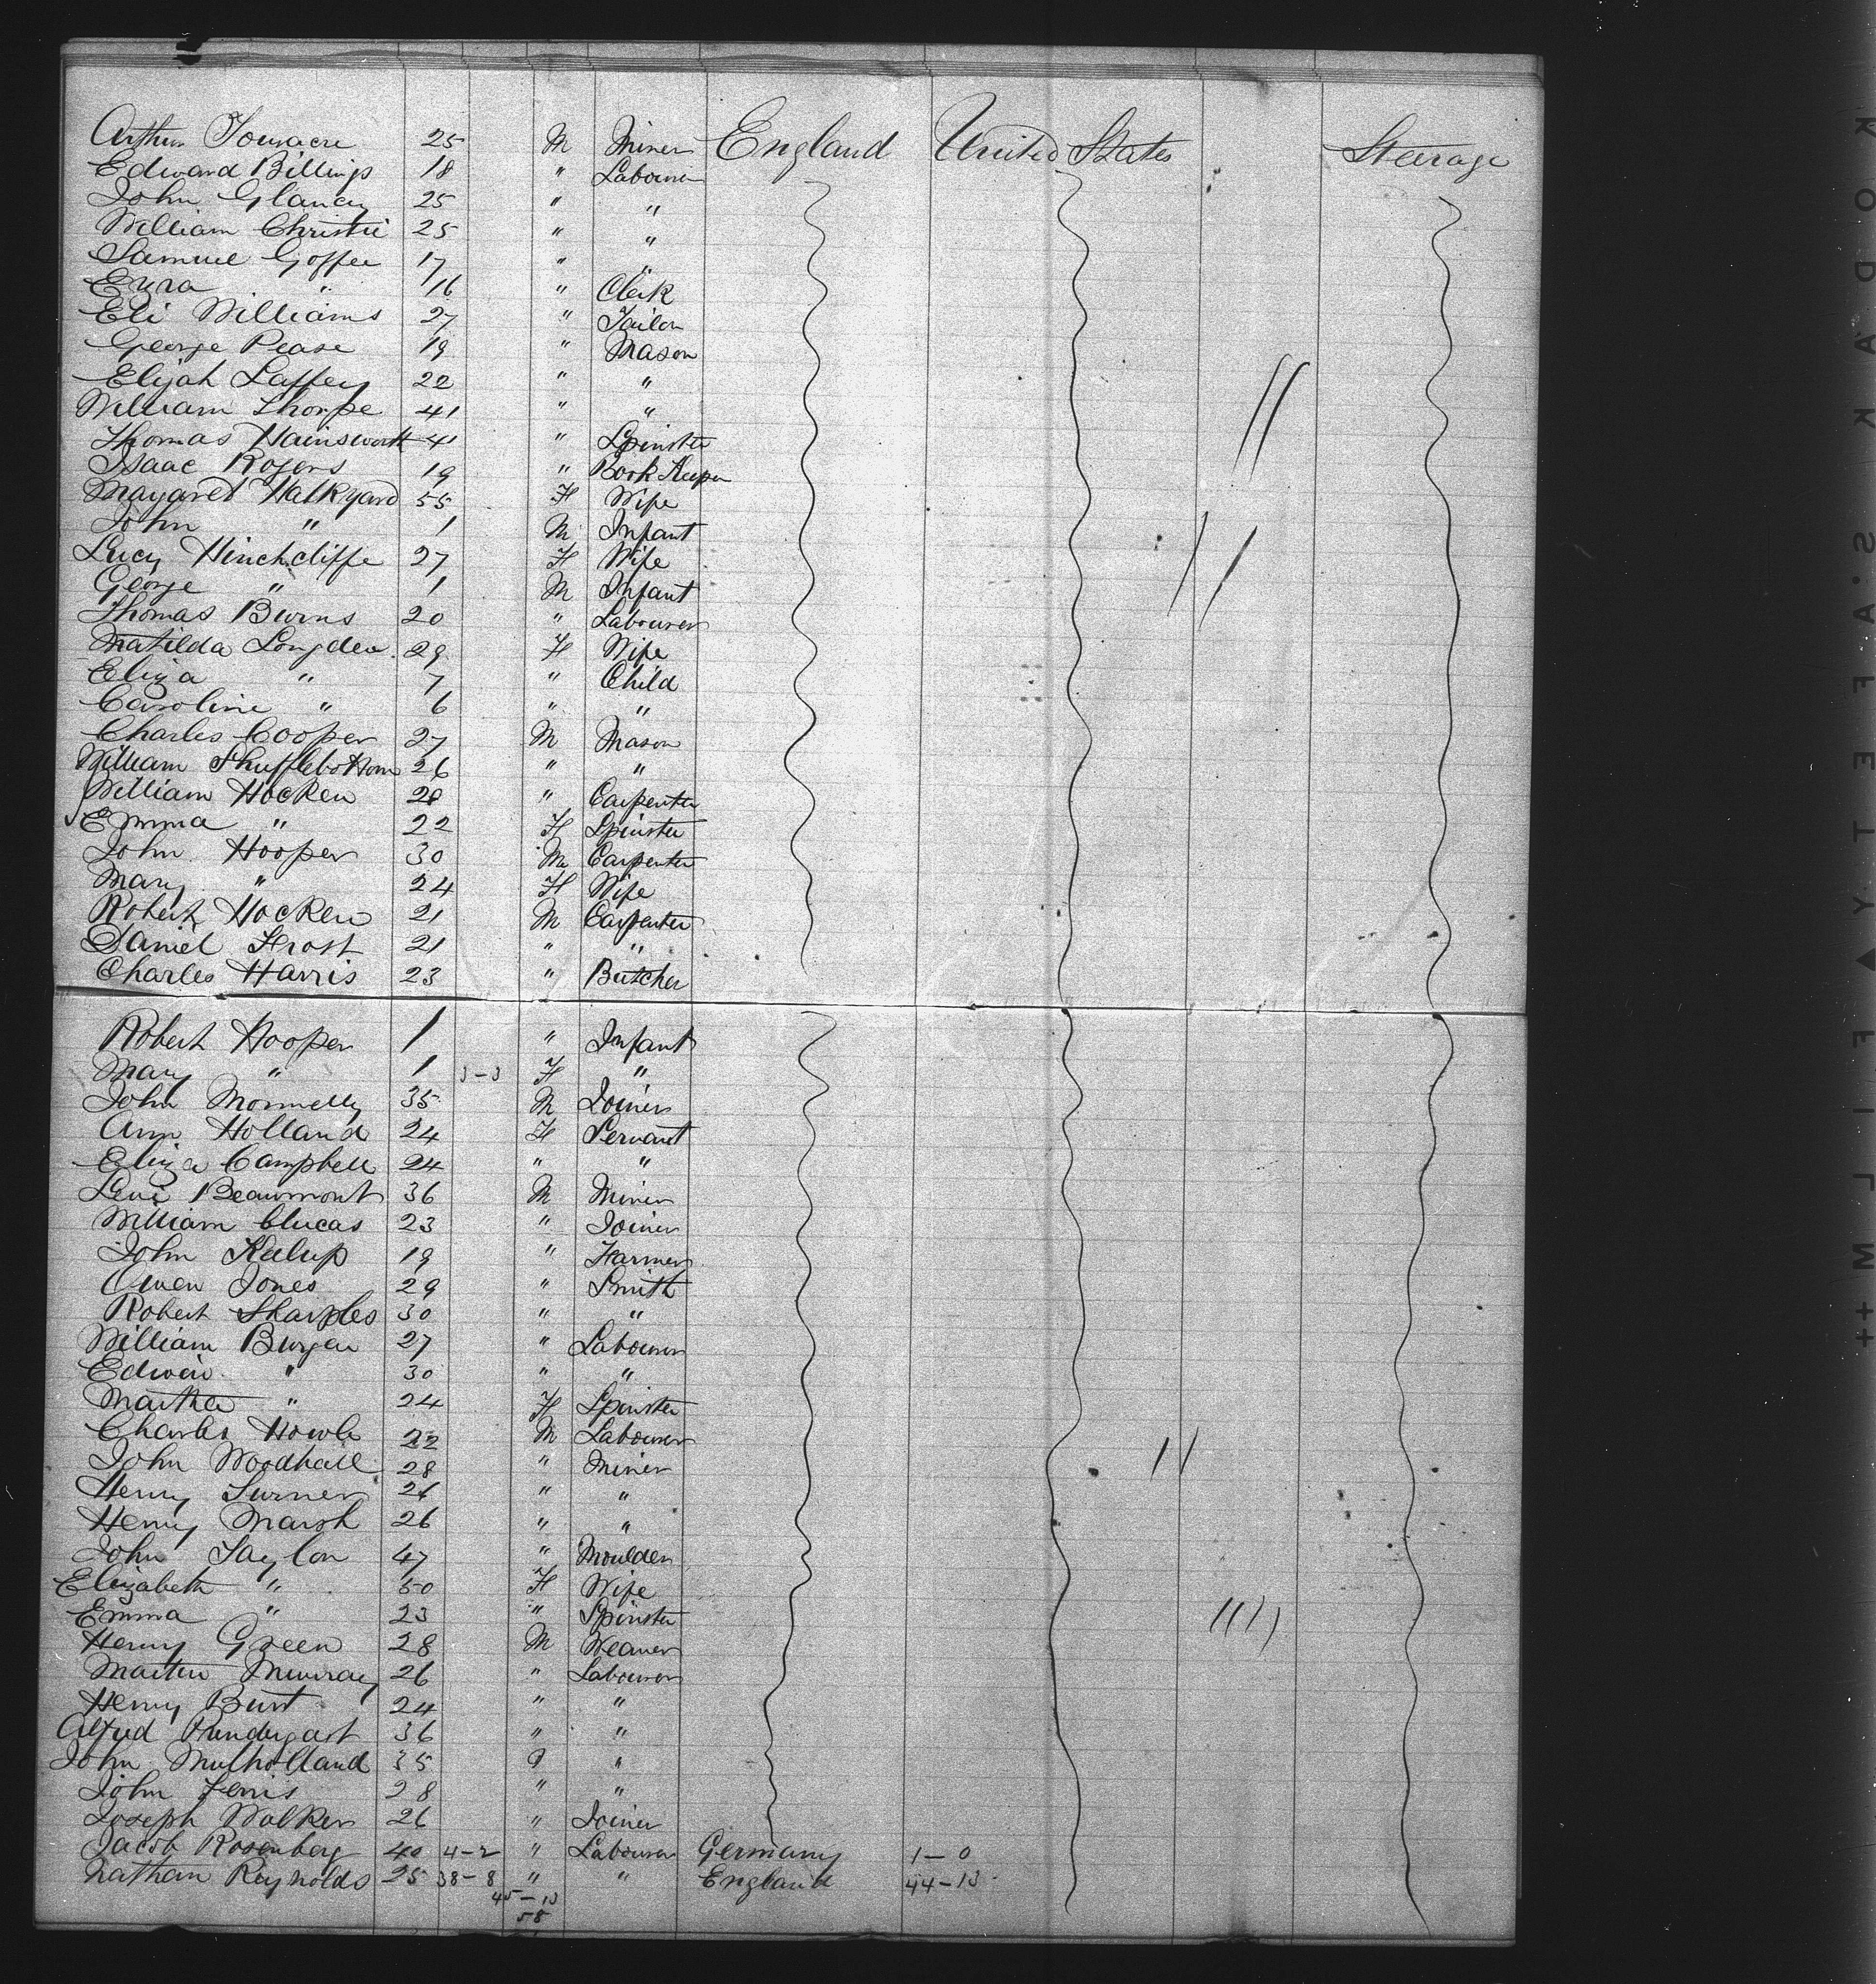 Arthur 25 M Miner England United States Steerage
Edward Billings 18 " Labourer
John Glancy 25 " "
William Christie 25 " "
Samuel Goffee 17 " "
Ezra " 16 " Clerk
Eli Williams 27 " Tailor
George Pease 19 " Mason
Elijah Laffey 22 " "
William Thorpe 41 " "
Thomas Hainsworth 41 " Spinster
Isaac Rogers 19 " Book Keeper
Margaret Halkyard 55 F Wife
John " 1 M Infant
Lucy Hinchcliffe 27 F Wife
George " 1 M Infant
Thomas Burns 20 " Labourer
Matilda Longden 29 F Wife
Eliza " 7 " Child
Caroline " 6 " "
Charles Cooper 27 M Mason
William Shufflebottom 26 " "
William Hocken 28 " Carpenter
Emma " 22 F Spinster
John Hooper 30 M Carpenter
Mary " 24 F Wife
Robert Hocken 21 M Carpenter
Daniel Frost 21 " "
Charles Harris 23 " Butcher
Robert Hooper 1 " Infant
Mary " 1 3-3 F "
John Monnelly 35 M Joiner
Ann Holland 24 F Servant
Eliza Campbell 24 " "
Levi Beaumont 36 M Miner
William Clucas 23 " Joiner
John 19 " Farmer
Owen Jones 29 " Smith
Robert Sharples 30 " "
William Burgen 27 " Labourer
Edwin " 30 " "
Martha " 24 F Spinster
Charles Howle 22 M Labourer
John Woodhall 28 " Miner
Henry Turner 26 " "
Henry Marsh 26 " "
John Taylor 47 " Moulder
Elizabeth " 50 F Wife
Emma " 23 " Spinster
Henry Green 28 M Weaver
Martin Murray 26 " Labourer
Henry Burt 24 " "
Alfred Pendergast 36 " "
John Mulholland 35 "
John Ferris 28 " "
Joseph Walker 26 " Joiner
Jacob Rosenberg 40 4-2 " Labourer Germany 1-0
Nathan Reynolds 25 38-8 " " England 44-13
45-13
58